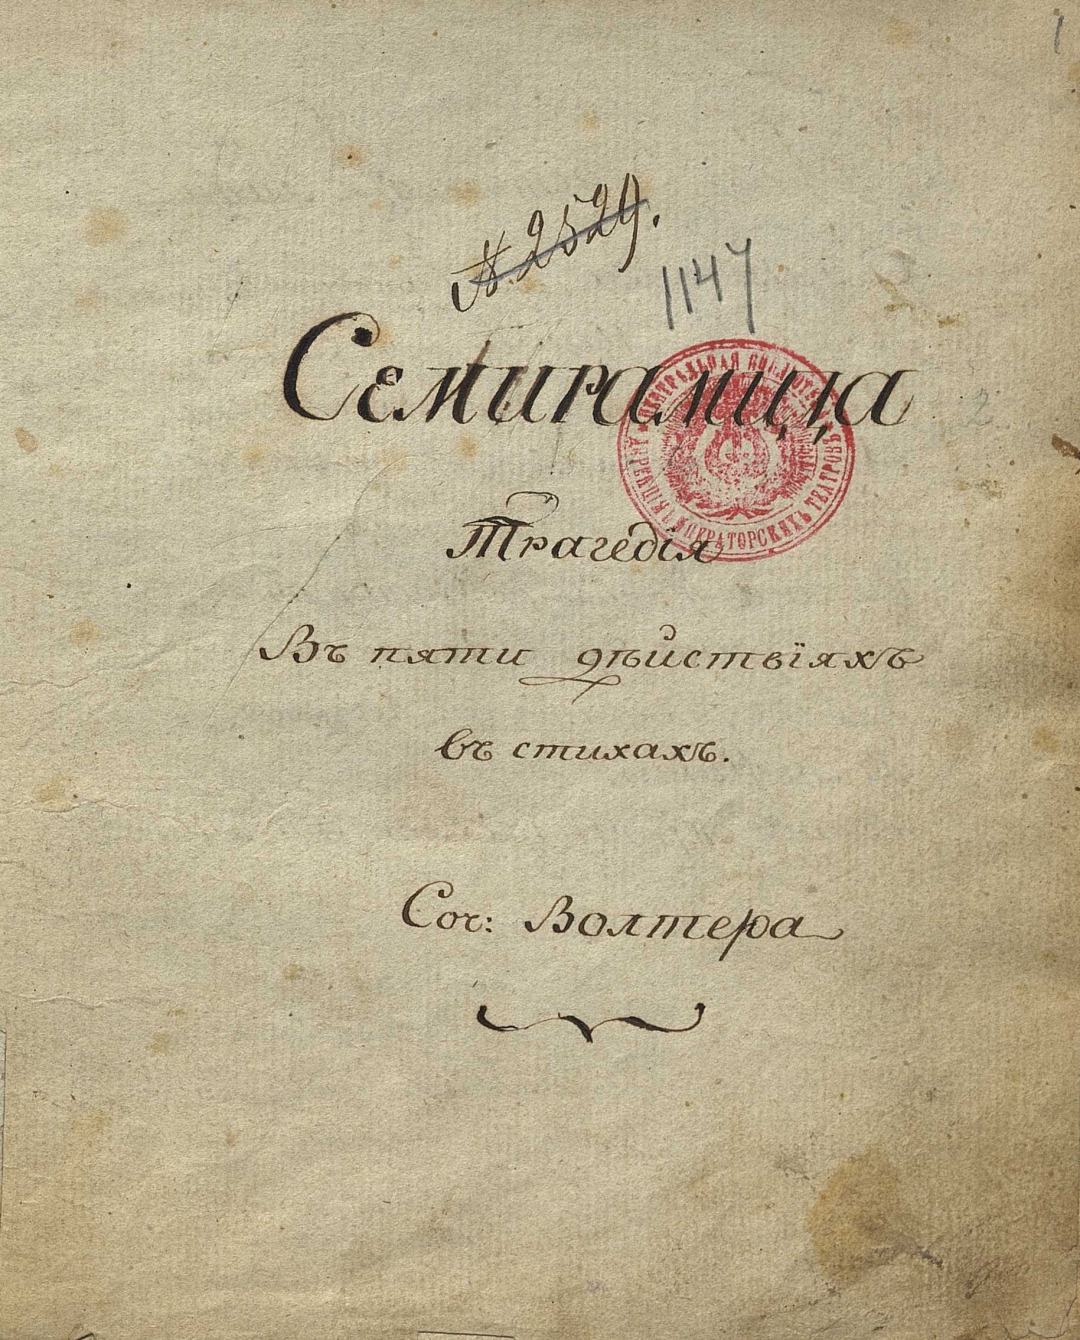 1
№ 2529.
1147
Семирамида
ЦЕНТРАЛЬНАЯ БИБЛІОТЕКА
ДИРЕКЦІЯ ИМПЕРАТОРСКИХЪ ТЕАТРОВЪ
2
Трагедія
Въ пяти дѣйствіяхъ
въ стихахъ.
Соч: Волтера